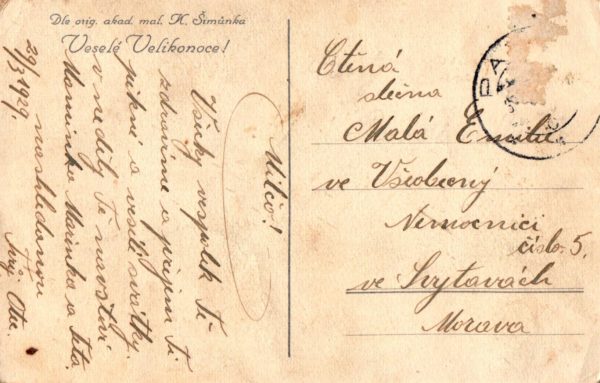 Dle orig. akad. mal. K. Šimůnka
Veselé Velikonoce!
29/3 1929.
Milčo!
Všicky vespolek Tě
zdravíme a přejem Ti
pěkné a veselé svátky.
v neděly Tě navštíví
Maminka Mařinka a teta.
nashledanou
Tvůj Ota.
Ctěná
slečna
Malá Emilie
ve Všeobecný
Nemocnici
číslo 5.
ve Svytavách
Morava